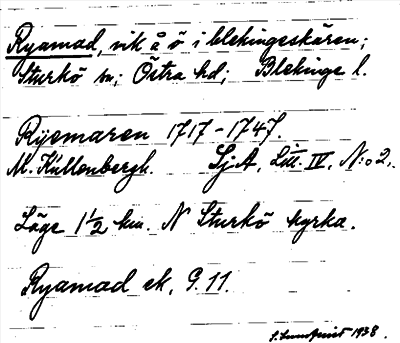 Ryamad, vik å ö i blekingeskären;
Sturkö sn; Östra hd; Blekinge l.
Rÿemaren 1717-1747.
M. Kullenbergh. Sj.A, Litt. IV, N:o 2.
Läge 1½ km. N Sturkö kyrka.
Ryamad ek. 9.11.
S. Lundquist 1938.